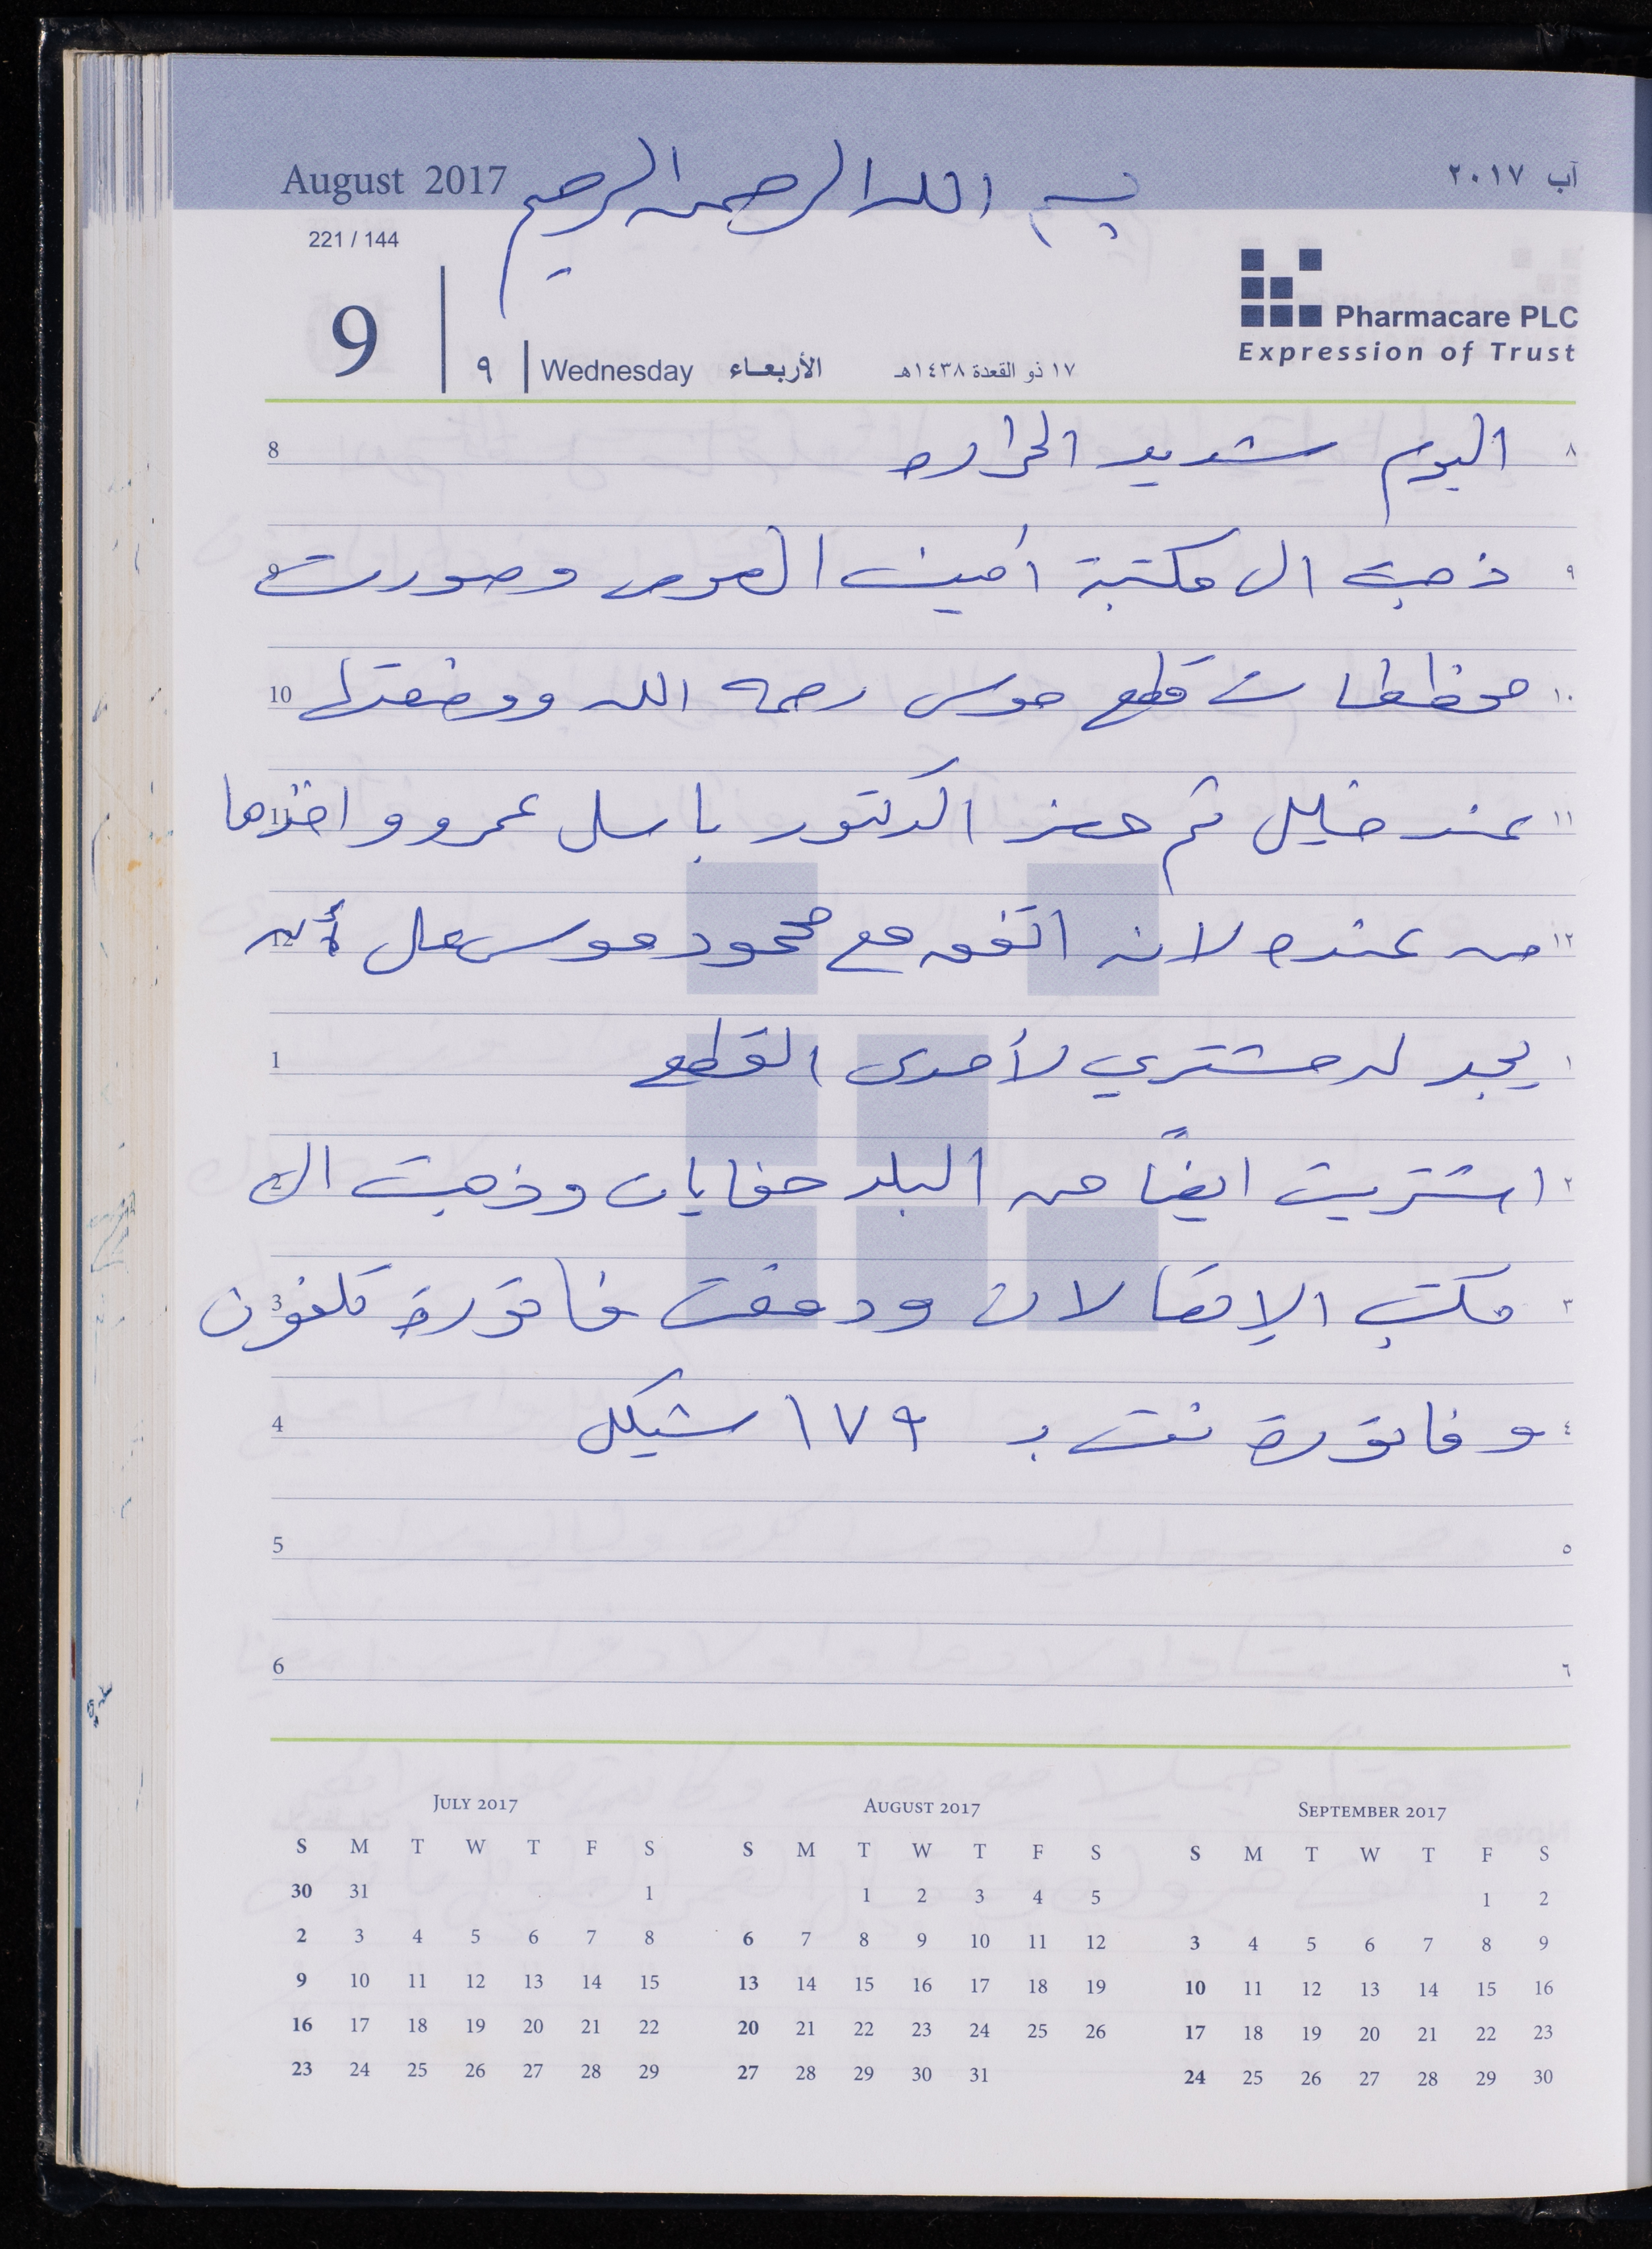 August 2017 بسم الله الرحمن الرحيم آب ٢٠١٧
221 / 144
Pharmacare PLC
Expression of Trust
9 ٩ Wednesday الأربعاء ١٧ ذو القعدة ١٤٣٨هـ
8 اليوم شديد الحراره ٨
9 ذهبت الى مكتبة أمين وصورت ٩
10 مخططات قطع موسى رحمه الله ووضعتها ١٠
11 عند خليل ثم حضر الدكتور باسل عمرو واخذها ١١
12 من عنده لانه اتفق مع محمود موسى على أنه ١٢
1 يجد له مشتري لأحدى القطع ١
2 اشتريت ايضاً من البلد حفايات وذهبت الى ٢
3 مكتب الإتصالات ودفعت فاتورة تلفون ٣
4 وفاتورة نت بـ ١٧٩ شيكل ٤
5 ٥
6 ٦
July 2017 August 2017 September 2017
S M T W T F S S M T W T F S S M T W T F S
30 31 1 1 2 3 4 5 1 2
2 3 4 5 6 7 8 6 7 8 9 10 11 12 3 4 5 6 7 8 9
9 10 11 12 13 14 15 13 14 15 16 17 18 19 10 11 12 13 14 15 16
16 17 18 19 20 21 22 20 21 22 23 24 25 26 17 18 19 20 21 22 23
23 24 25 26 27 28 29 27 28 29 30 31 24 25 26 27 28 29 30